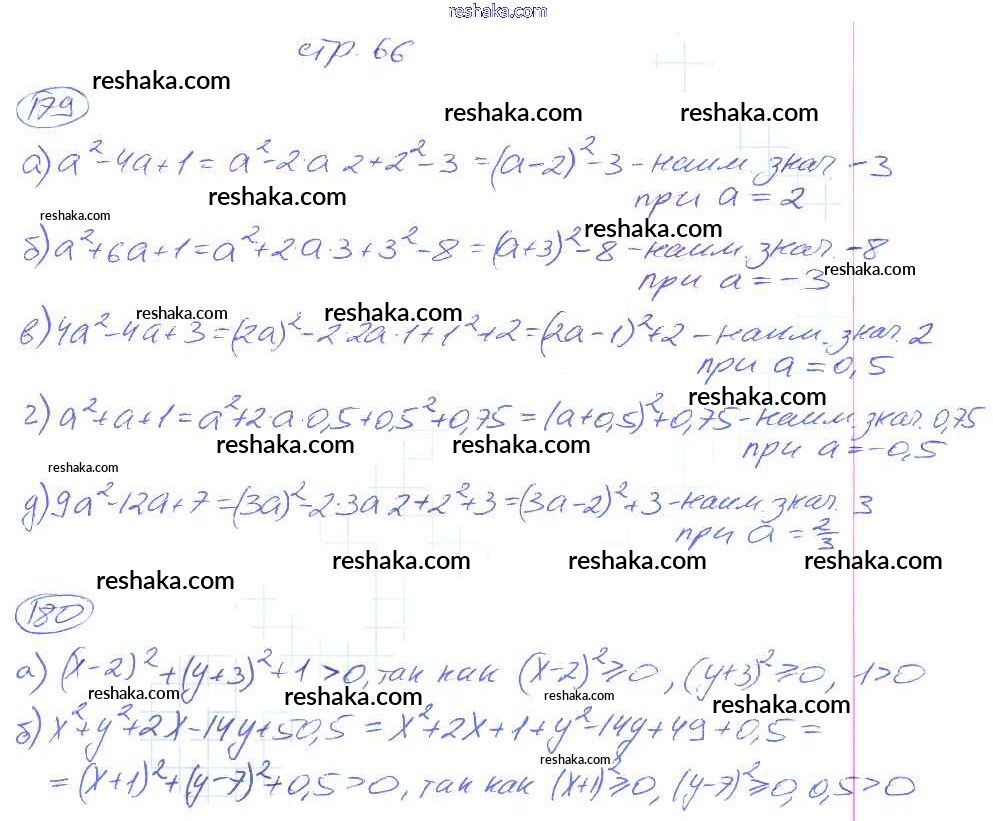 reshaka.com
стр. 66
reshaka.com
179
reshaka.com reshaka.com
а) a² - 4a + 1 = a² - 2·a 2 + 2² - 3 = (a - 2)² - 3 - наим. знач. -3
при a = 2
reshaka.com
reshaka.com reshaka.com
б) a² + 6a + 1 = a² + 2·a·3 + 3² - 8 = (a + 3)² - 8 - наим. знач. -8
при a = -3
reshaka.com
reshaka.com reshaka.com
в) 4a² - 4a + 3 = (2a)² - 2·2a·1 + 1² + 2 = (2a - 1)² + 2 - наим. знач. 2
при a = 0,5
reshaka.com
г) a² + a + 1 = a² + 2a·0,5 + 0,5² + 0,75 = (a + 0,5)² + 0,75 - наим. знач. 0,75
при a = -0,5
reshaka.com reshaka.com
reshaka.com
д) 9a² - 12a + 7 = (3a)² - 2·3a 2 + 2² + 3 = (3a - 2)² + 3 - наим. знач. 3
при a = 2/3
reshaka.com reshaka.com reshaka.com
reshaka.com
180
а) (x - 2)² + (y + 3)² + 1 > 0, так как (x - 2)² ≥ 0, (y + 3)² ≥ 0, 1 > 0
reshaka.com reshaka.com reshaka.com reshaka.com
б) x² + y² + 2x - 14y + 50,5 = x² + 2x + 1 + y² - 14y + 49 + 0,5 =
reshaka.com
= (x + 1)² + (y - 7)² + 0,5 > 0, так как (x + 1)² ≥ 0, (y - 7)² ≥ 0, 0,5 > 0